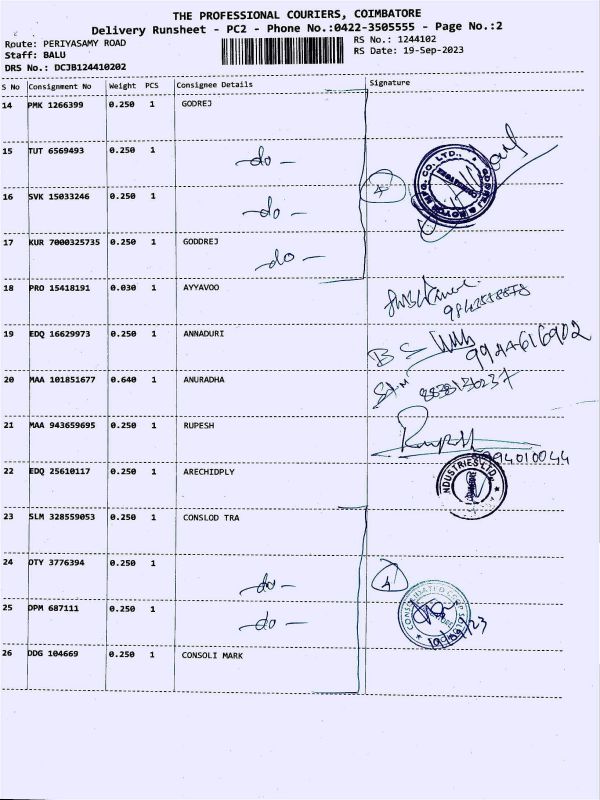 THE PROFESSIONAL COURIERS, COIMBATORE
Delivery Runsheet - PC2 - Phone No.:0422-3505555 - Page No.:2
Route: PERIYASAMY ROAD RS No.: 1244102
Staff: BALU RS Date: 19-Sep-2023
DRS No.: DCJB124410202
S No Consignment No Weight PCS Consignee Details Signature
14 PMK 1266399 0.250 1 GODREJ
15 TUT 6569493 0.250 1 -do-
16 SVK 15033246 0.250 1 -do- 4
17 KUR 7000325735 0.250 1 GODDREJ
-do-
18 PRO 15418191 0.030 1 AYYAVOO
19 EDQ 16629973 0.250 1 ANNADURI
9944616902
20 MAA 101851677 0.640 1 ANURADHA
21 MAA 943659695 0.250 1 RUPESH
994010044
22 EDQ 25610117 0.250 1 ARECHIDPLY
INDUSTRIES LTD.
23 SLM 328559053 0.250 1 CONSLOD TRA
24 OTY 3776394 0.250 1
-do- 4
25 DPM 687111 0.250 1 -do-
19/09/23
26 DDG 104669 0.250 1 CONSOLI MARK